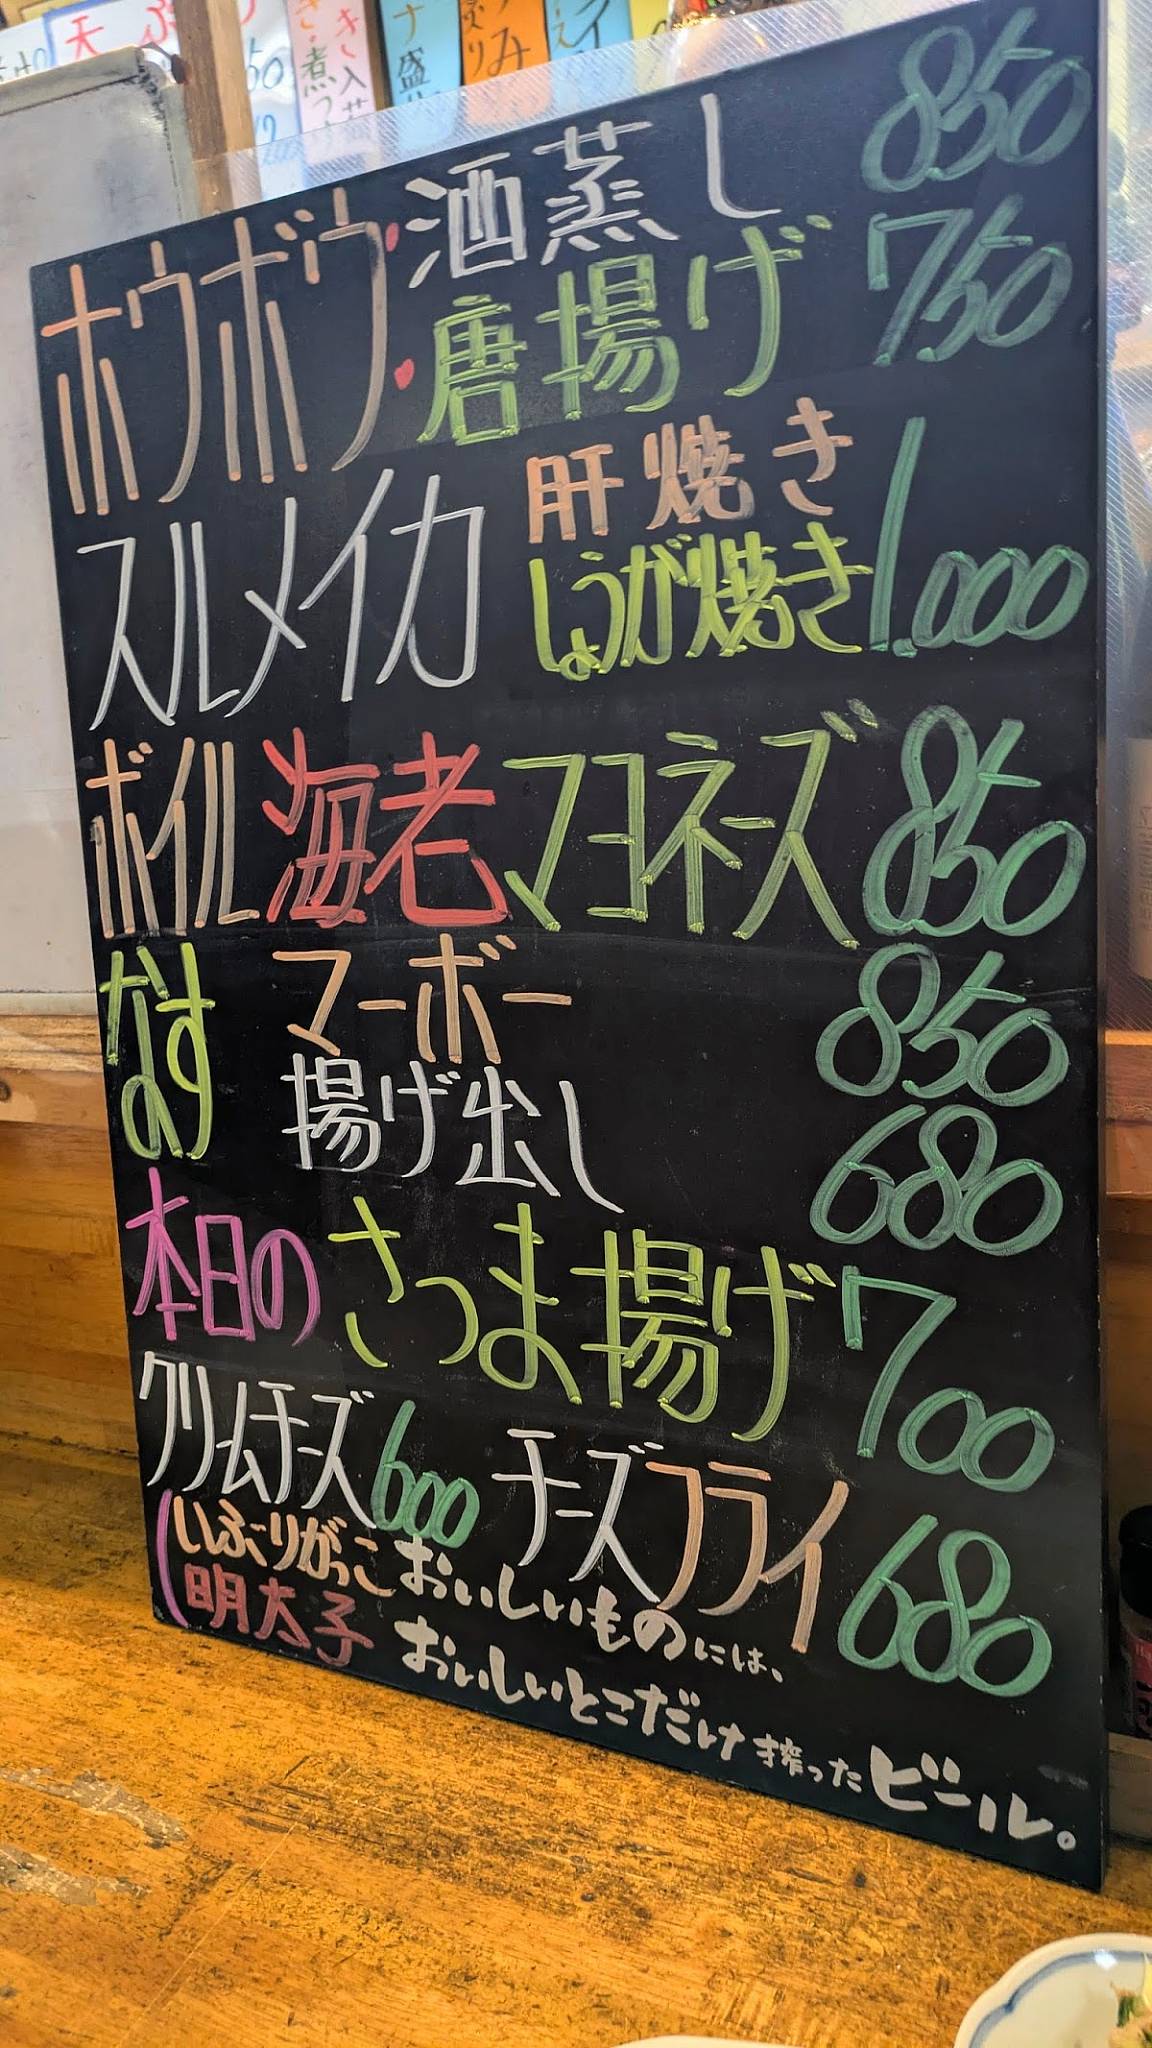 ホウボウ・酒蒸し 850
・唐揚げ 750
スルメイカ 肝焼き
しょうが焼き 1,000
ボイル海老マヨネーズ 850
なす マーボー 850
揚げ出し 680
本日のさつま揚げ 700
クリームチーズ 600 チーズフライ 680
(いぶりがっこ
明太子
おいしいものには、
おいしいとこだけ搾ったビール。